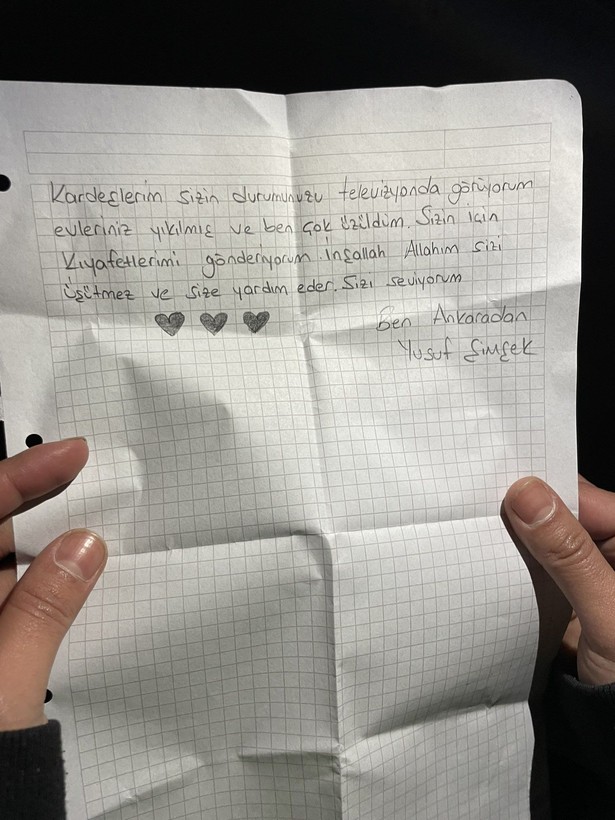 Kardeşlerim sizin durumunuzu televizyonda görüyorum
evleriniz yıkılmış ve ben çok üzüldüm. Sizin için
Kıyafetlerimi gönderiyorum. İnşallah Allahım sizi
üşütmez ve size yardım eder. Sizi seviyorum
Ben Ankaradan
Yusuf Şimşek